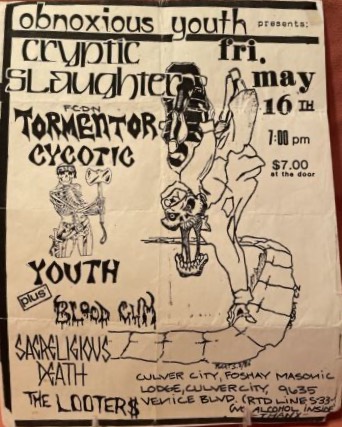 obnoxious youth presents:
cryptic
slaughter
fri.
may
16 TH
7:00 pm
$7.00
at the door
FCDN
TORMENTOR
CYCOTIC
YOUTH
plus
BLOOD CUM
SACRELIGIOUS
DEATH
THE LOOTER$
CULVER CITY, FOSHAY MASONIC
LODGE, CULVER CITY, 9635
VENICE BLVD. (RTD LINE 5-33-
ALCOHOL INSIDE